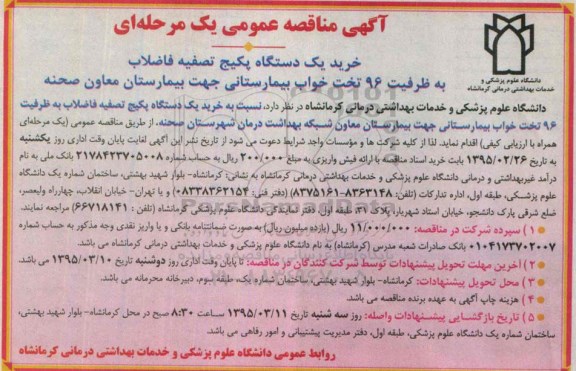 آگهی مناقصه عمومی یک مرحله‌ای
خرید یک دستگاه پکیج تصفیه فاضلاب
به ظرفیت ۹۶ تخت خواب بیمارستانی جهت بیمارستان معاون صحنه
دانشگاه علوم پزشکی و
خدمات بهداشتی درمانی کرمانشاه
دانشگاه علوم پزشکی و خدمات بهداشتی درمانی کرمانشاه در نظر دارد، نسبت به خرید یک دستگاه پکیج تصفیه فاضلاب به ظرفیت
۹۶ تخت خواب بیمارستانی جهت بیمارستان معاون شبکه بهداشت درمان شهرستان صحنه، از طریق مناقصه عمومی (یک مرحله‌ای
همراه با ارزیابی کیفی) اقدام نماید. لذا از کلیه شرکت ها و مؤسسات واجد شرایط دعوت می شود از تاریخ نشر این آگهی لغایت پایان وقت اداری روز یکشنبه
به تاریخ ۱۳۹۵/۰۲/۲۶ بابت خرید اسناد مناقصه با ارائه فیش واریزی به مبلغ ۲۰۰/۰۰۰ ریال به حساب شماره ۲۱۷۸۴۲۳۷۰۵۰۰۸ بانک ملی به نام
درآمد غیربهداشتی و درمانی دانشگاه علوم پزشکی و خدمات بهداشتی درمانی کرمانشاه به نشانی: کرمانشاه- بلوار شهید بهشتی، ساختمان شماره یک دانشگاه
علوم پزشکی، طبقه اول، اداره تدارکات (تلفن: ۸۳۶۳۱۴۸-۸۳۷۵۱۶۱) (دفتر فنی: ۰۸۳۳۸۳۶۳۱۵۴) و یا تهران- خیابان انقلاب، چهارراه ولیعصر،
ضلع شرقی پارک دانشجو، خیابان استاد شهریار، پلاک ۳۱، طبقه اول، دفتر نمایندگی دانشگاه علوم پزشکی کرمانشاه (تلفن: ۶۶۷۱۸۱۴۱) مراجعه نمایند.
۱) سپرده شرکت در مناقصه: ۱۱/۰۰۰/۰۰۰ ریال (یازده میلیون ریال) به صورت ضمانتنامه بانکی و یا واریز نقدی وجه مذکور به حساب شماره
۰۱۰۴۱۷۳۷۰۲۰۰۷ بانک صادرات شعبه مدرس (کرمانشاه) به نام دانشگاه علوم پزشکی و خدمات بهداشتی درمانی کرمانشاه می باشد.
۲) آخرین مهلت تحویل پیشنهادات توسط شرکت کنندگان در مناقصه: تا پایان وقت اداری روز دوشنبه تاریخ ۱۳۹۵/۰۳/۱۰ می باشد.
۳) محل تحویل پیشنهادات: کرمانشاه- بلوار شهید بهشتی، ساختمان شماره یک، طبقه سوم، دبیرخانه محرمانه می باشد.
۴) هزینه چاپ آگهی به عهده برنده مناقصه می باشد.
۵) تاریخ بازگشایی پیشنهادات واصله: روز سه شنبه تاریخ ۱۳۹۵/۰۳/۱۱ ساعت ۸:۳۰ صبح در محل کرمانشاه- بلوار شهید بهشتی،
ساختمان شماره یک دانشگاه علوم پزشکی، طبقه اول، دفتر مدیریت پشتیبانی و امور رفاهی می باشد.
روابط عمومی دانشگاه علوم پزشکی و خدمات بهداشتی درمانی کرمانشاه